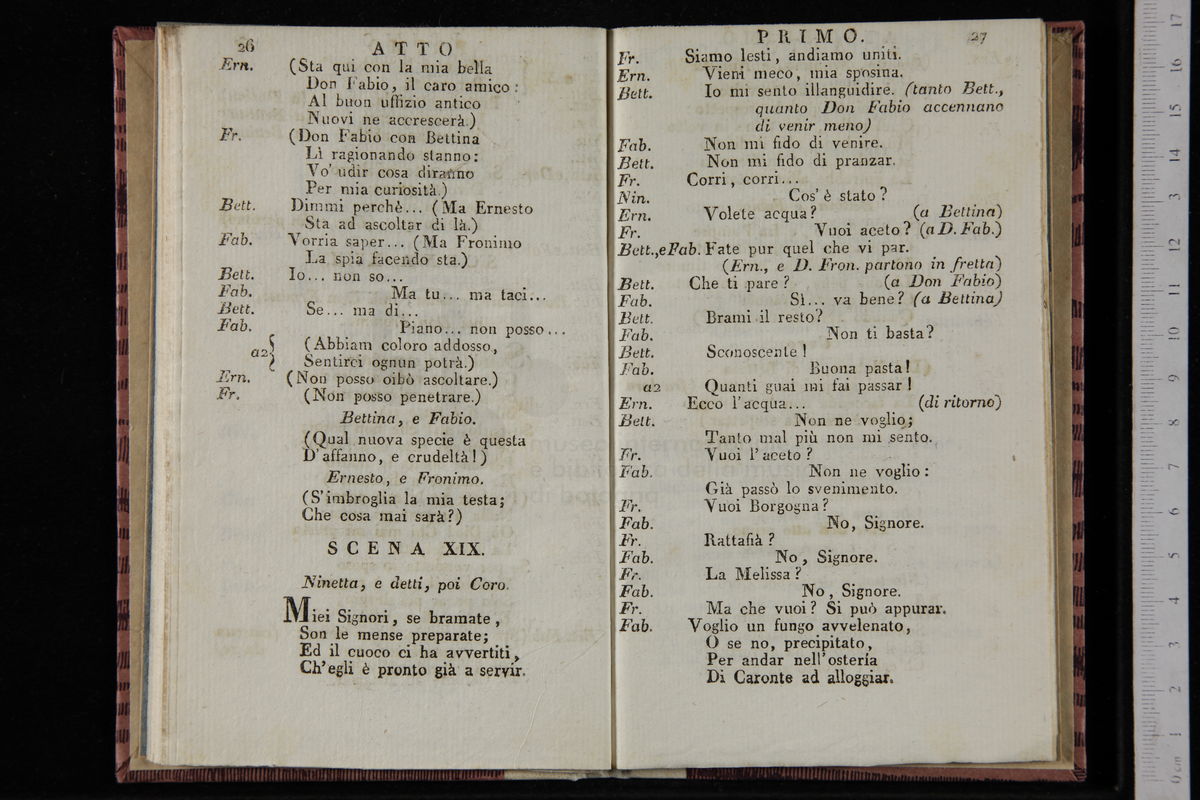 26
ATTO
Ern. (Sta qui con la mia bella
Don Fabio, il caro amico:
Al buon uffizio antico
Nuovi ne accrescerà.)
Fr. (Don Fabio con Bettina
Lì ragionando stanno:
Vo' udir cosa diranno
Per mia curiosità.)
Bett. Dimmi perchè... (Ma Ernesto
Sta ad ascoltar di là.)
Fab. Vorria saper... (Ma Fronimo
La spia facendo sta.)
Bett. Io... non so...
Fab. Ma tu... ma taci...
Bett. Se... ma di...
Fab. Piano... non posso...
a2 { (Abbiam coloro addosso,
Sentirci ognun potrà.)
Ern. (Non posso oibò ascoltare.)
Fr. (Non posso penetrare.)
Bettina, e Fabio.
(Qual nuova specie è questa
D'affanno, e crudeltà!)
Ernesto, e Fronimo.
(S'imbroglia la mia testa;
Che cosa mai sarà?)
SCENA XIX.
Ninetta, e detti, poi Coro.
Miei Signori, se bramate,
Son le mense preparate;
Ed il cuoco ci ha avvertiti,
Ch'egli è pronto già a servir.
PRIMO.
27
Fr. Siamo lesti, andiamo uniti.
Ern. Vieni meco, mia sposina.
Bett. Io mi sento illanguidire. (tanto Bett.,
quanto Don Fabio accennano
di venir meno)
Fab. Non mi fido di venire.
Bett. Non mi fido di pranzar.
Fr. Corri, corri...
Nin. Cos' è stato?
Ern. Volete acqua? (a Bettina)
Fr. Vuoi aceto? (a D. Fab.)
Bett.,eFab. Fate pur quel che vi par.
(Ern., e D. Fron. partono in fretta)
Bett. Che ti pare? (a Don Fabio)
Fab. Sì... va bene? (a Bettina)
Bett. Brami il resto?
Fab. Non ti basta?
Bett. Sconoscente!
Fab. Buona pasta!
a2 Quanti guai mi fai passar!
Ern. Ecco l'acqua... (di ritorno)
Bett. Non ne voglio;
Tanto mal più non mi sento.
Fr. Vuoi l'aceto?
Fab. Non ne voglio:
Già passò lo svenimento.
Fr. Vuoi Borgogna?
Fab. No, Signore.
Fr. Rattafià?
Fab. No, Signore.
Fr. La Melissa?
Fab. No, Signore.
Fr. Ma che vuoi? Si può appurar.
Fab. Voglio un fungo avvelenato,
O se no, precipitato,
Per andar nell'osteria
Di Caronte ad alloggiar.